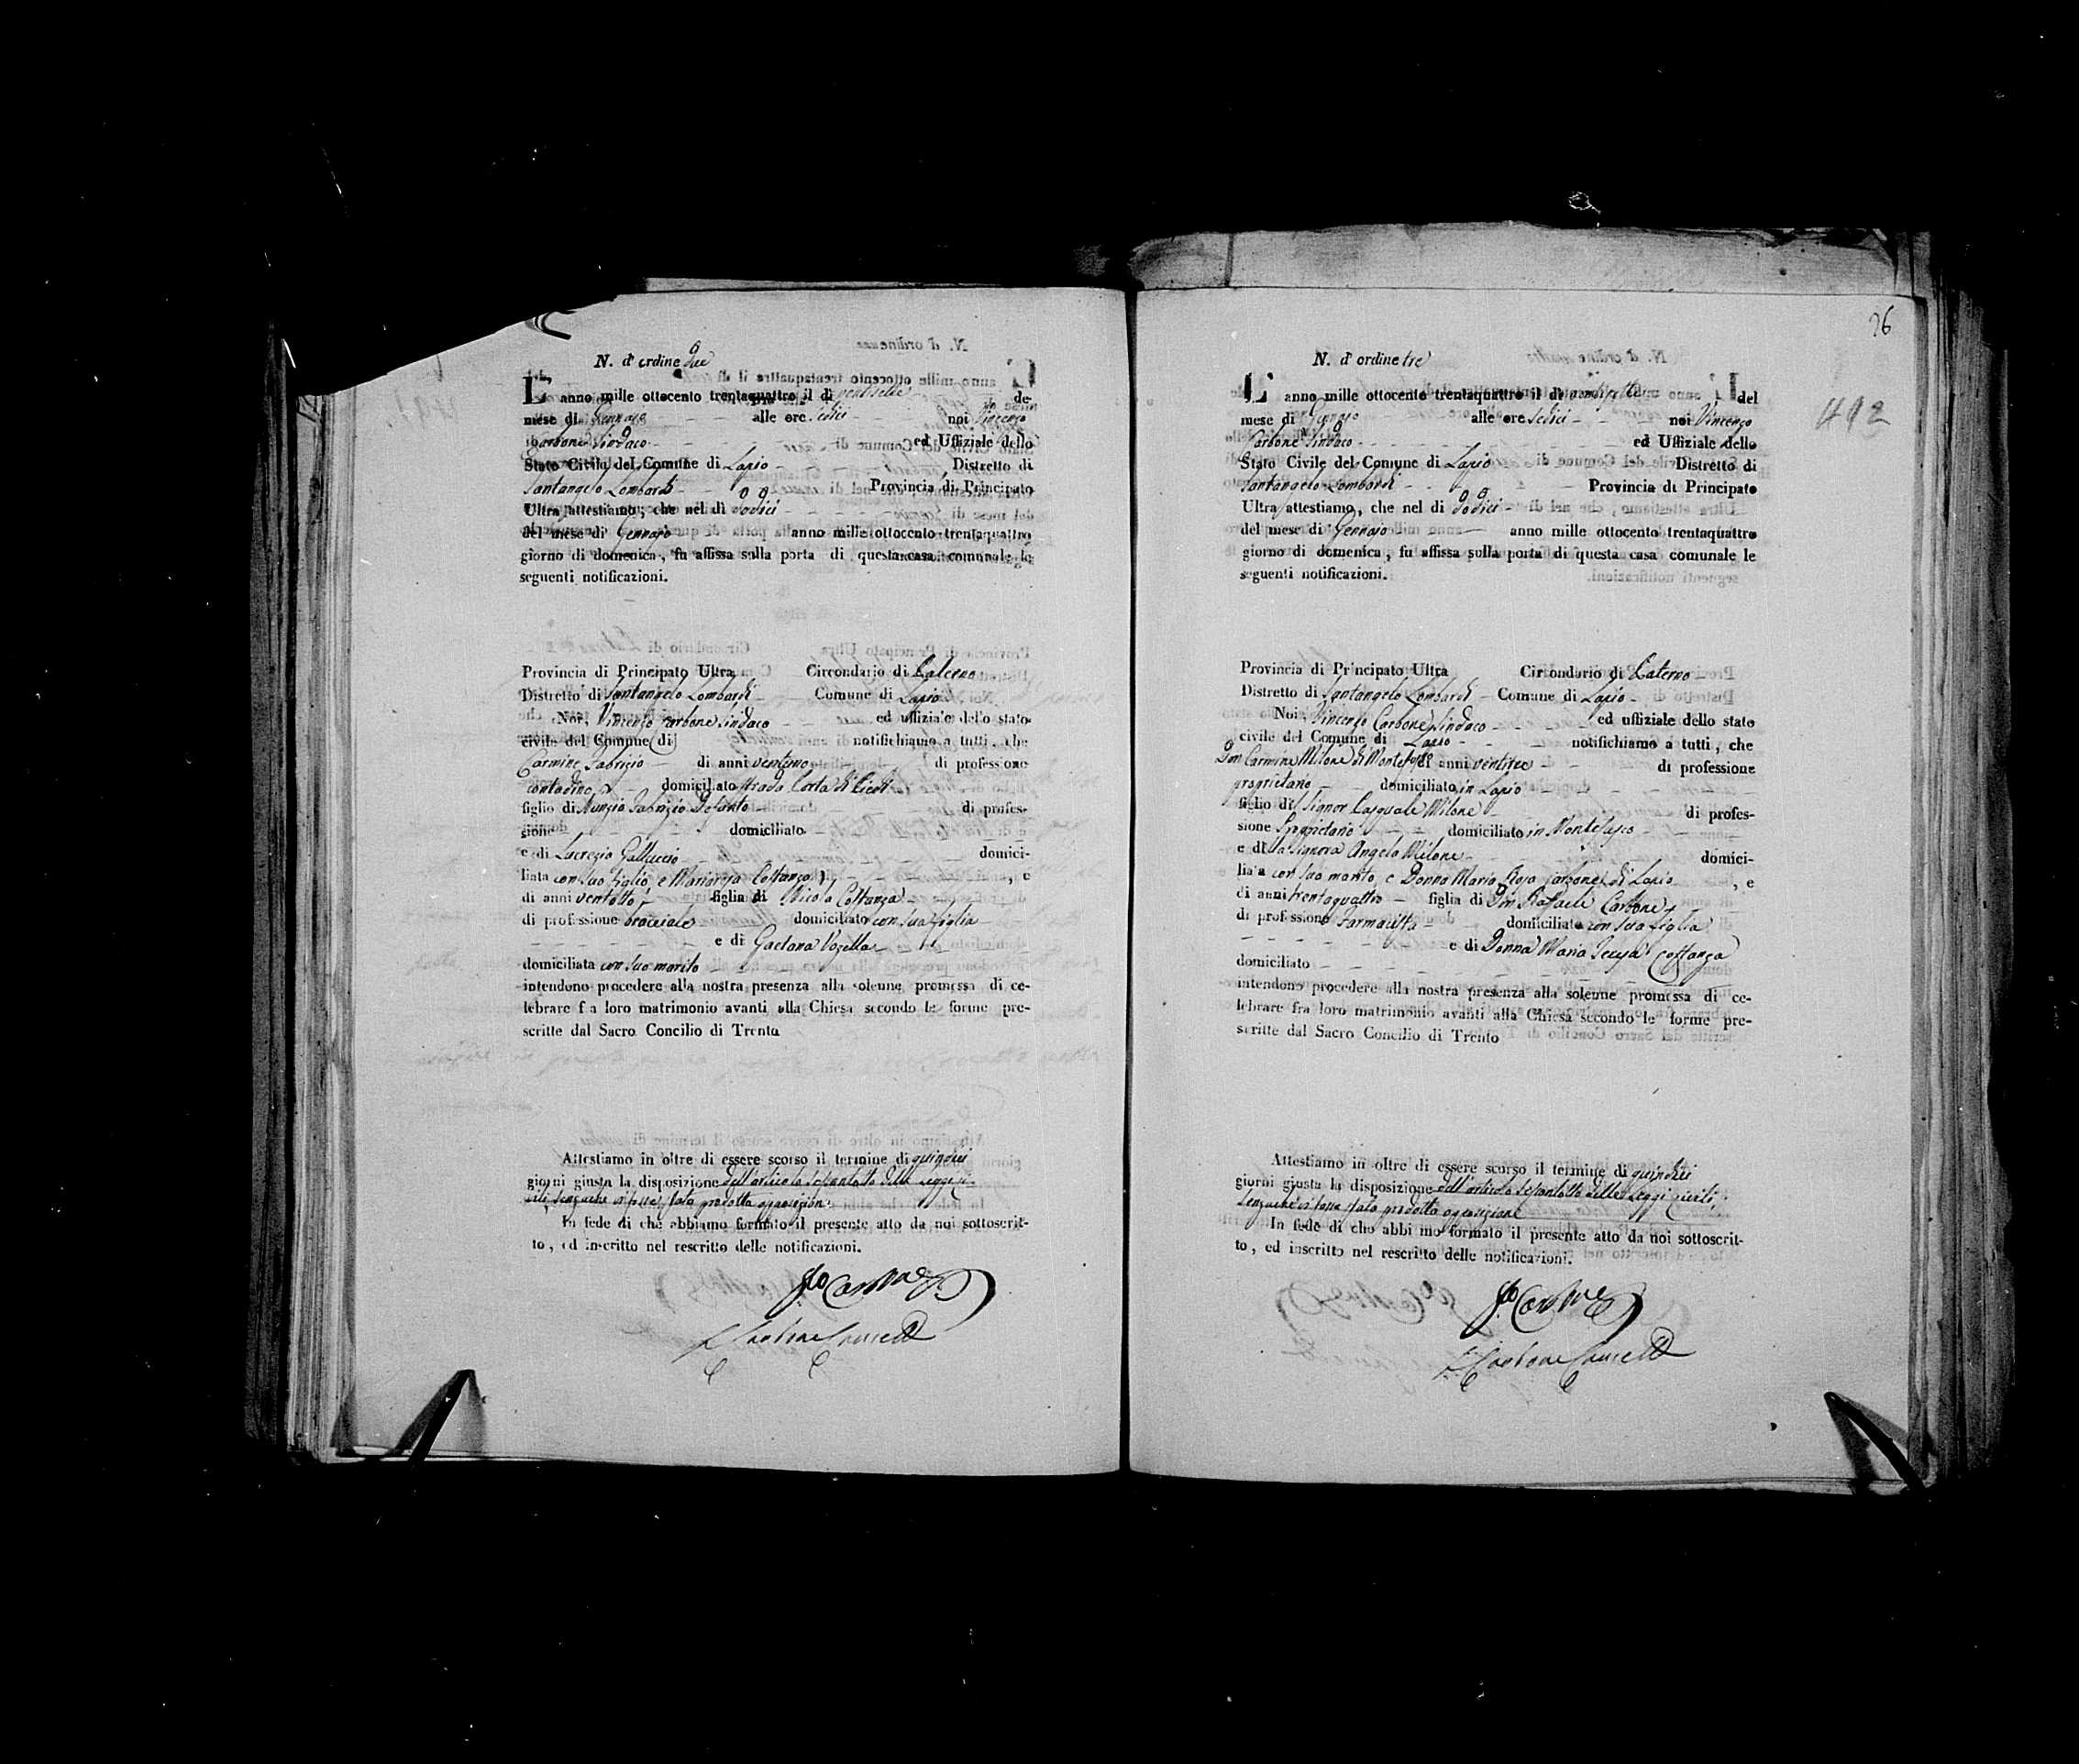 N. d' ordine due
L' anno mille ottocento trentaquattro il dì ventisette del
mese di Gennajo alle ore sedici noi Vincenzo
Carbone Sindaco ed Uffiziale dello
Stato Civile del Comune di Lapio Distretto di
Santangelo Lombardi Provincia di Principato
Ultra attestiamo, che nel dì dodici
del mese di Gennajo anno mille ottocento trentaquattro
giorno di domenica, fu affissa sulla porta di questa casa comunale le
seguenti notificazioni.
Provincia di Principato Ultra Circondario di Paterno
Distretto di Santangelo Lombardi Comune di Lapio
Noi, Vincenzo Carbone Sindaco ed uffiziale dello stato
civile del Comune di notifichiamo a tutti, che
Carmine Fabrizio di anni ventuno di professione
contadino domiciliato strada Corta di Piedi
figlio di Nunzio Fabrizio Defunto di profes-
sione domiciliato
e di Lucrezia Galluccio domici-
liata con suo figlio, e Mariarosa Costanza, e
di anni ventotto, figlia di Nicola Costanza
di professione bracciale domiciliato con sua figlia
e di Gaetana Vozella
domiciliata con suo marito
intendono procedere alla nostra presenza alla solenne promessa di ce-
lebrare fra loro matrimonio avanti alla Chiesa secondo le forme pre-
scritte dal Sacro Concilio di Trento
Attestiamo in oltre di essere scorso il termine di quindici
giorni giusta la disposizione dell'articolo settantotto delle Leggi ci-
vili, senzache vi fosse stata prodotta opposizione
In fede di che abbiamo formato il presente atto da noi sottoscrit-
to, ed inscritto nel rescritto delle notificazioni.
Carbone
26
412
N. d' ordine tre
L' anno mille ottocento trentaquattro il dì ventisette del
mese di Gennajo alle ore sedici noi Vincenzo
Carbone Sindaco ed Uffiziale dello
Stato Civile del Comune di Lapio Distretto di
Santangelo Lombardi Provincia di Principato
Ultra attestiamo, che nel dì dodici
del mese di Gennajo anno mille ottocento trentaquattro
giorno di domenica, fu affissa sulla porta di questa casa comunale le
seguenti notificazioni.
Provincia di Principato Ultra Circondario di Paterno
Distretto di Santangelo Lombardi Comune di Lapio
Noi Vincenzo Carbone Sindaco ed uffiziale dello stato
civile del Comune di Lapio notifichiamo a tutti, che
Don Carmine Milone di Montefusco di anni ventitre di professione
proprietario domiciliato in Lapio
figlio di Signor Pasquale Milone di profes-
sione Proprietario domiciliato in Montefusco
e di la Signora Angela Milone domici-
liata con suo marito, e Donna Maria Rosa Carbone di Lapio, e
di anni trentaquattro figlia di Don Rafaele Carbone
di professione Farmacista domiciliato con sua figlia
e di Donna Maria Teresa Costanza
domiciliato
intendono procedere alla nostra presenza alla solenne promessa di ce-
lebrare fra loro matrimonio avanti alla Chiesa secondo le forme pre-
scritte dal Sacro Concilio di Trento
Attestiamo in oltre di essere scorso il termine di quindici
giorni giusta la disposizione dell'articolo settantotto delle Leggi civili,
senzache vi fosse stata prodotta opposizione
In fede di che abbiamo formato il presente atto da noi sottoscrit-
to, ed inscritto nel rescritto delle notificazioni.
Carbone